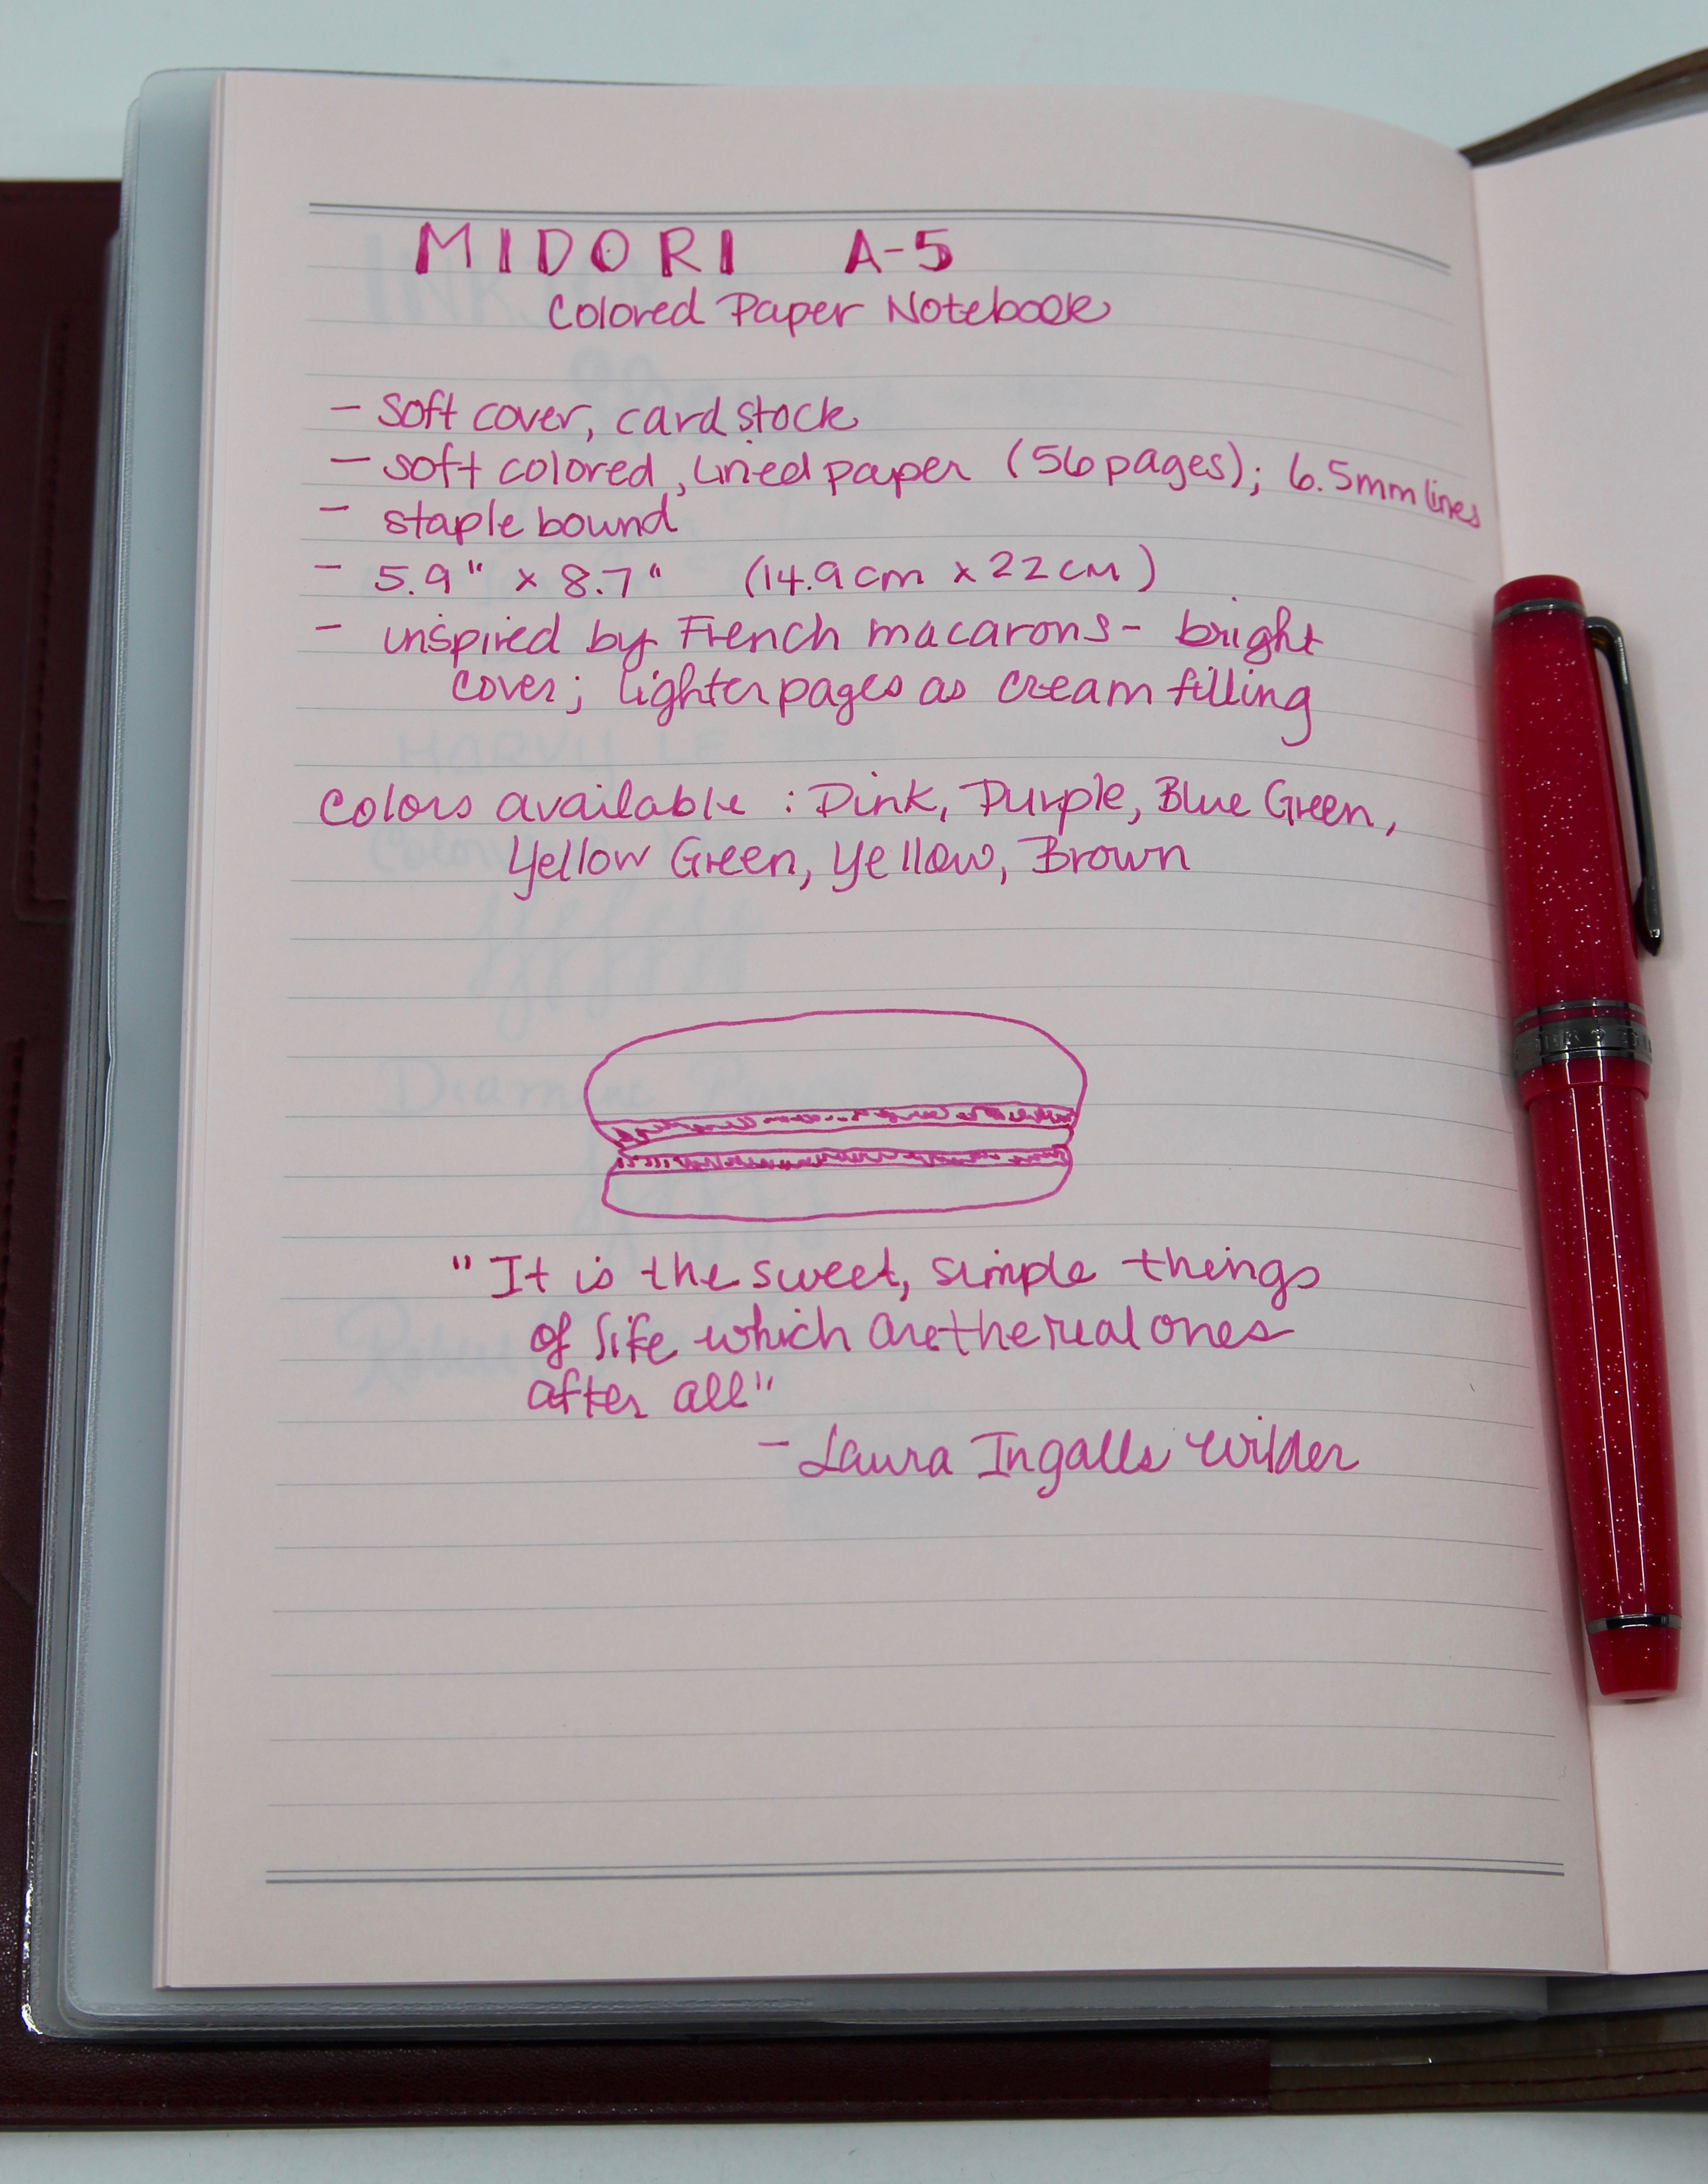 MIDORI A-5
Colored Paper Notebook
- soft cover, card stock
- soft colored, lined paper (56 pages); 6.5mm lines
- staple bound
- 5.9" x 8.7" (14.9cm x 22cm)
- inspired by French macarons - bright
cover; lighter pages as cream filling
Colors available : Pink, Purple, Blue Green,
Yellow Green, Yellow, Brown
"It is the sweet, simple things
of life which are the real ones
after all"
- Laura Ingalls Wilder